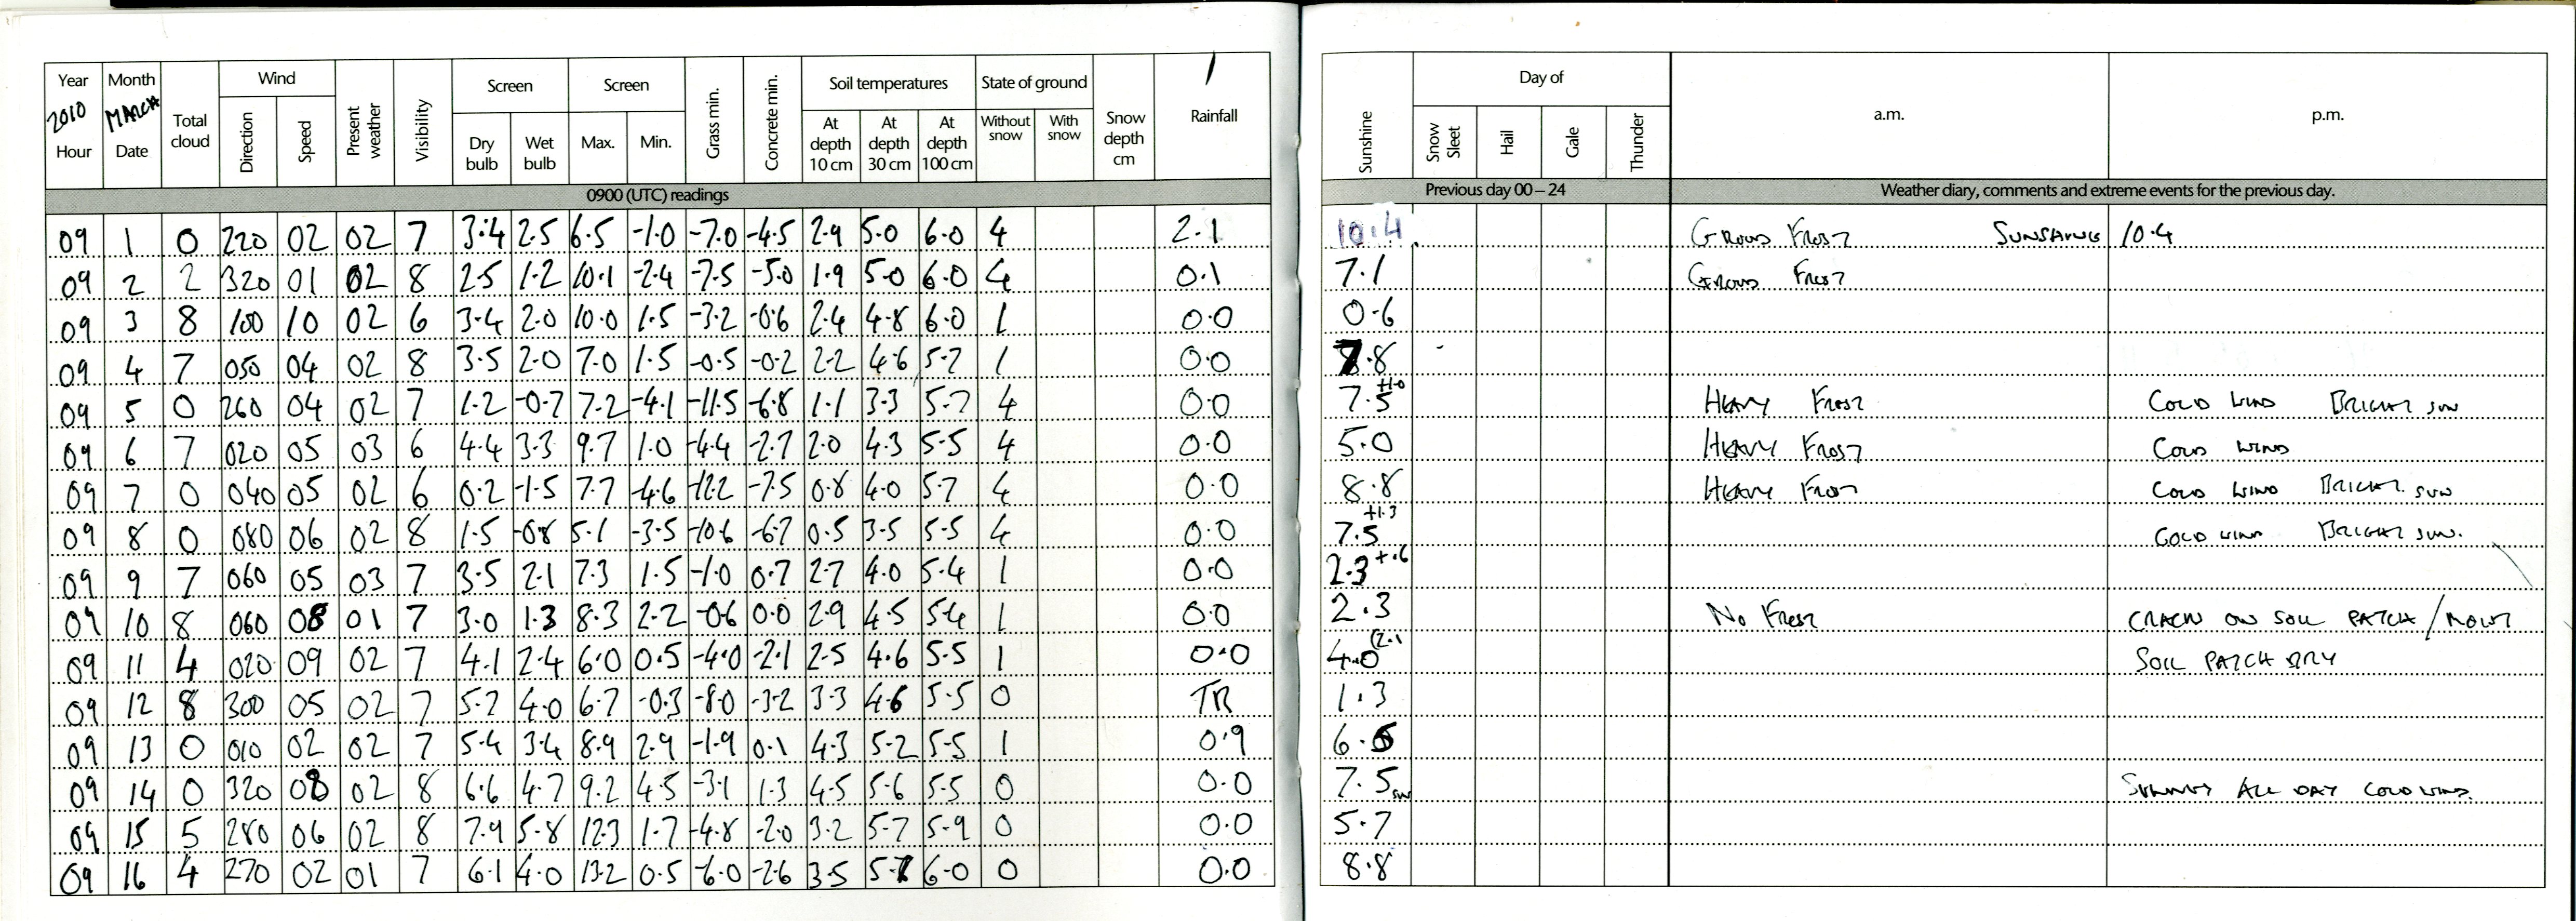 Year Month Total cloud Wind Present weather Visibility Screen Screen Grass min. Concrete min. Soil temperatures State of ground Snow depth cm Rainfall Sunshine Day of a.m. p.m.
2010 MARCH Direction Speed Dry bulb Wet bulb Max. Min. At depth 10 cm At depth 30 cm At depth 100 cm Without snow With snow Snow Sleet Hail Gale Thunder
Hour Date
0900 (UTC) readings Previous day 00 – 24 Weather diary, comments and extreme events for the previous day.
09 1 0 220 02 02 7 3.4 2.5 6.5 -1.0 -7.0 -4.5 2.9 5.0 6.0 4 2.1 10.4 GROUND FROST SUNSHINE 10.4
09 2 2 320 01 02 8 2.5 1.2 10.1 -2.4 -7.5 -5.0 1.9 5.0 6.0 4 0.1 7.1 GROUND FROST
09 3 8 100 10 02 6 3.4 2.0 10.0 1.5 -3.2 -0.6 2.4 4.8 6.0 1 0.0 0.6
09 4 7 050 04 02 8 3.5 2.0 7.0 1.5 -0.5 -0.2 2.2 4.6 5.7 1 0.0 .8
09 5 0 260 04 02 7 1.2 -0.7 7.2 -4.1 -11.5 -6.8 1.1 3.3 5.7 4 0.0 7.5 +1.0 HEAVY FROST COLD WIND BRIGHT SUN
09 6 7 020 05 03 6 4.4 3.3 9.7 1.0 -4.4 -2.7 2.0 4.3 5.5 4 0.0 5.0 HEAVY FROST COLD WIND
09 7 0 040 05 02 6 0.2 -1.5 7.7 -4.6 -12.2 -7.5 0.8 4.0 5.7 4 0.0 8.8 HEAVY FROST COLD WIND BRIGHT SUN
09 8 0 080 06 02 8 1.5 -0.8 5.1 -3.5 -10.6 -6.7 0.5 3.5 5.5 4 0.0 7.5 +1.3 COLD WIND BRIGHT SUN.
09 9 7 060 05 03 7 3.5 2.1 7.3 1.5 -1.0 0.7 2.7 4.0 5.4 1 0.0 2.3 +.6
09 10 8 060 08 01 7 3.0 1.3 8.3 2.2 -0.6 0.0 2.9 4.5 5.4 1 0.0 2.3 NO FROST CRACK ON SOIL PATCH / MOIST
09 11 4 020 09 02 7 4.1 2.4 6.0 0.5 -4.0 -2.1 2.5 4.6 5.5 1 0.0 4.0 (2.1 SOIL PATCH DRY
09 12 8 300 05 02 7 5.7 4.0 6.7 -0.3 -8.0 -3.2 3.3 4.6 5.5 0 TR 1.3
09 13 0 010 02 02 7 5.4 3.4 8.9 2.9 -1.9 0.1 4.3 5.2 5.5 1 0.9 6.
09 14 0 320 08 02 8 6.6 4.7 9.2 4.5 -3.1 1.3 4.5 5.6 5.5 0 0.0 7.5 SUN SUNNY ALL DAY COLD WIND.
09 15 5 280 06 02 8 7.9 5.8 12.3 1.7 -4.8 -2.0 3.2 5.7 5.9 0 0.0 5.7
09 16 4 270 02 01 7 6.1 4.0 13.2 0.5 -6.0 -2.6 3.5 6.0 0 0.0 8.8